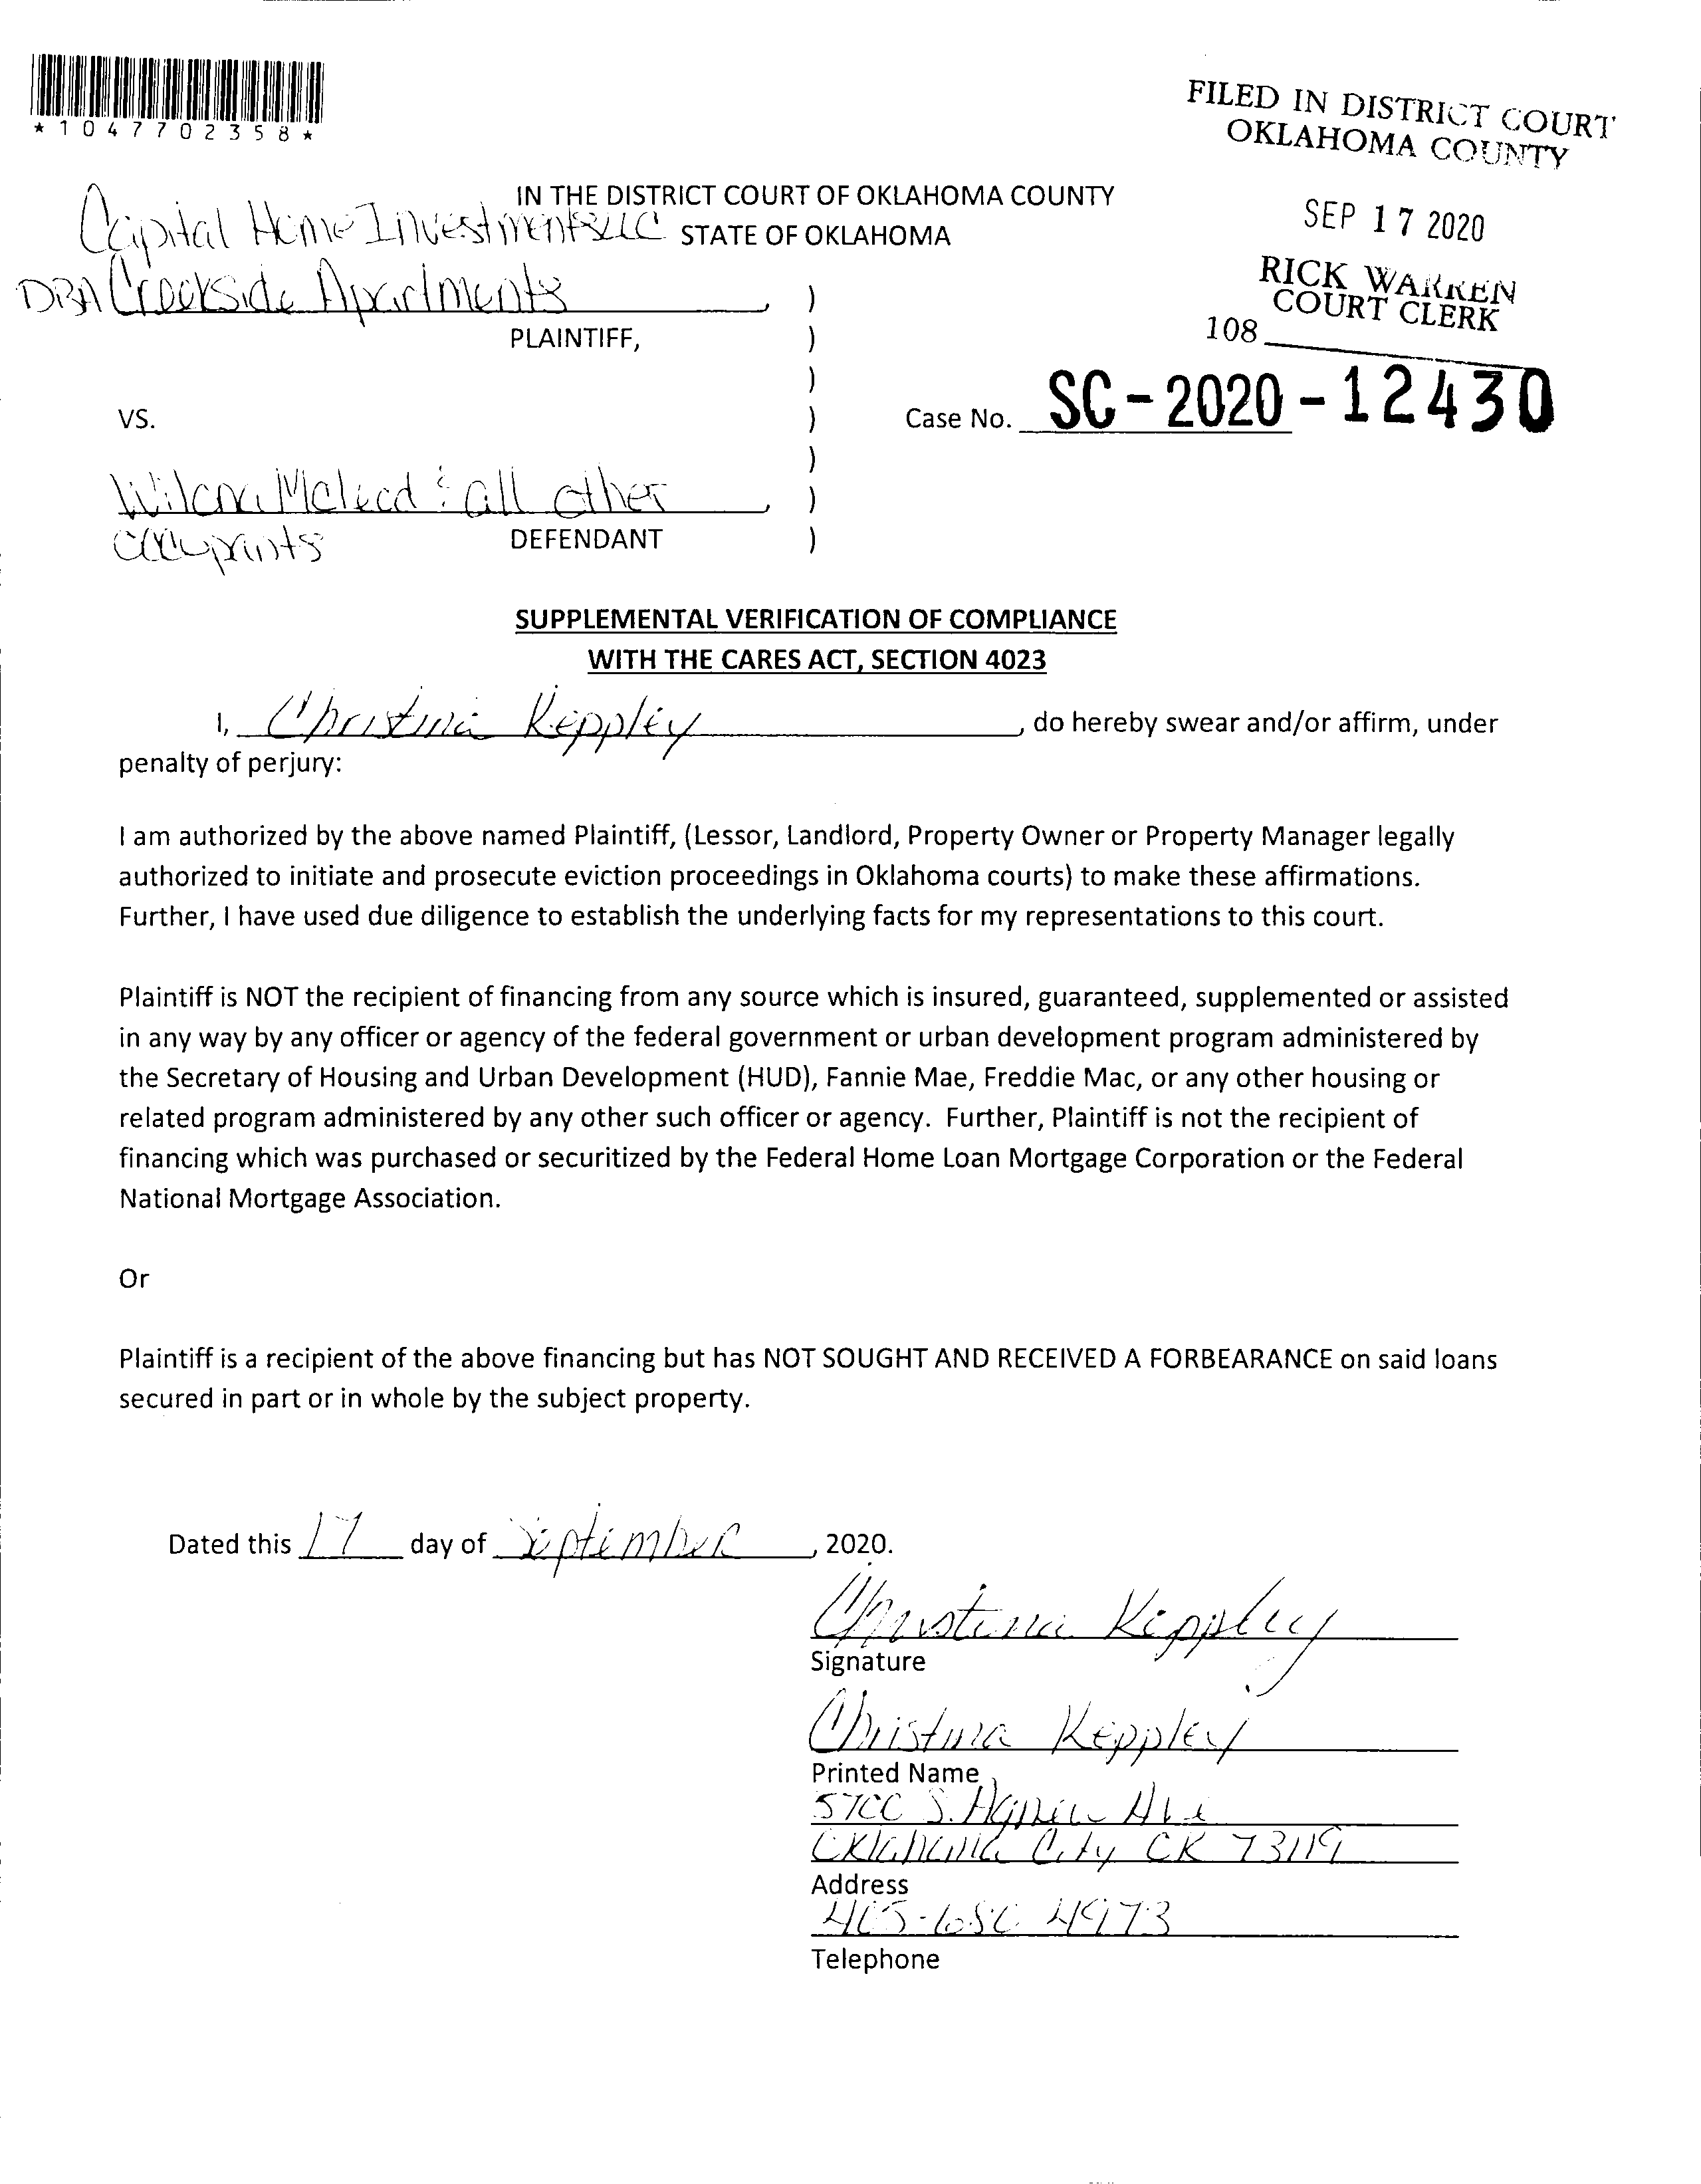 *1047702358*
FILED IN DISTRICT COURT
OKLAHOMA COUNTY
SEP 17 2020
RICK WARREN
COURT CLERK
108
IN THE DISTRICT COURT OF OKLAHOMA COUNTY
STATE OF OKLAHOMA
Capital Home Investments LLC
DBA Creekside Apartments
PLAINTIFF,
VS.
Case No. SC-2020-12430
Mcleod & all other
occupants
DEFENDANT
SUPPLEMENTAL VERIFICATION OF COMPLIANCE
WITH THE CARES ACT, SECTION 4023
I, Christina Keppley, do hereby swear and/or affirm, under
penalty of perjury:
I am authorized by the above named Plaintiff, (Lessor, Landlord, Property Owner or Property Manager legally
authorized to initiate and prosecute eviction proceedings in Oklahoma courts) to make these affirmations.
Further, I have used due diligence to establish the underlying facts for my representations to this court.
Plaintiff is NOT the recipient of financing from any source which is insured, guaranteed, supplemented or assisted
in any way by any officer or agency of the federal government or urban development program administered by
the Secretary of Housing and Urban Development (HUD), Fannie Mae, Freddie Mac, or any other housing or
related program administered by any other such officer or agency. Further, Plaintiff is not the recipient of
financing which was purchased or securitized by the Federal Home Loan Mortgage Corporation or the Federal
National Mortgage Association.
Or
Plaintiff is a recipient of the above financing but has NOT SOUGHT AND RECEIVED A FORBEARANCE on said loans
secured in part or in whole by the subject property.
Dated this 17 day of September, 2020.
Christina Keppley
Signature
Christina Keppley
Printed Name
5700 S. Agnew Ave
Oklahoma City OK 73119
Address
405-650 4973
Telephone